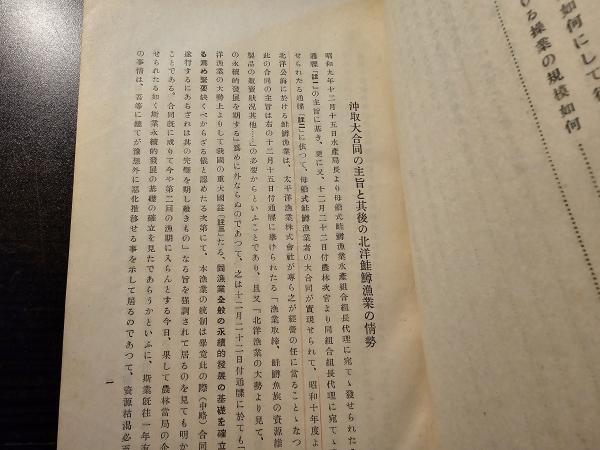 沖取大合同の主旨と其後の北洋鮭鱒漁業の情勢
昭和九年十二月十五日水産局長より母船式鮭鱒漁業水産組合組長代理に宛てゝ發せられた
通牒(註一)の主旨に基き、更に又、十二月二十二日付農林次官より同組合組長代理に宛てゝ
せられたる通牒(註二)に依つて、母船式鮭鱒漁業者の大合同が實現せられて、昭和十年度よ
北洋公海に於ける鮭鱒漁業は、太平洋漁業株式會社が專ら之が經營の任に當ることゝなつ
此の合同の主旨は右の十二月十五日付通牒に擧げられたる「漁業取締、鮭鱒魚族の資源維
製品の販賣狀況其他…」の必要からといふことであり、且又「北洋漁業の大勢より見て、
の永續的發展を期する」爲めに外ならぬのであつて、之は十二月二十二日付通牒に於ても「
洋漁業の大勢上よりして我國の重大國益(註三)たる、同漁業全般の永續的發展の基礎を確立
る爲め緊要缺くべからざる儀と認めたる次第にて、本漁業の統制は畢竟此の際(中略)合同
遂行するにあらざれは其の完璧を期し難きもの」なる旨を强調されて居るのを見ても明か
ことである。合同既に成りて今や第二回の漁期に入らんとする今日、果して農林當局の企
せられたる如く斯業永續的發展の基礎の確立を見たであらうかといふに、斯業既往一年有
の事情は、吾等に總てが豫想外に惡化推移せる事を示して居るのであつて、資源枯渇必至
一
如何にして
ける操業の規模如何